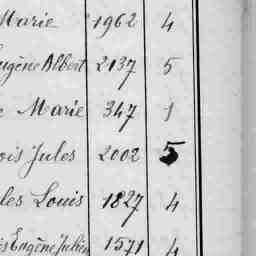 Marie 1962 4
ugène Albert 2137 5
Marie 347 1
ois Jules 2002 5
les Louis 1827 4
is Eugène Julien 1571 4